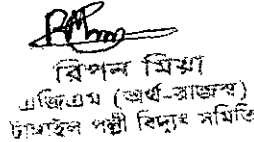 রিপন মিয়া
এজিএম (অর্থ-রাজস্ব)
টাঙ্গাইল পল্লী বিদ্যুৎ সমিতি